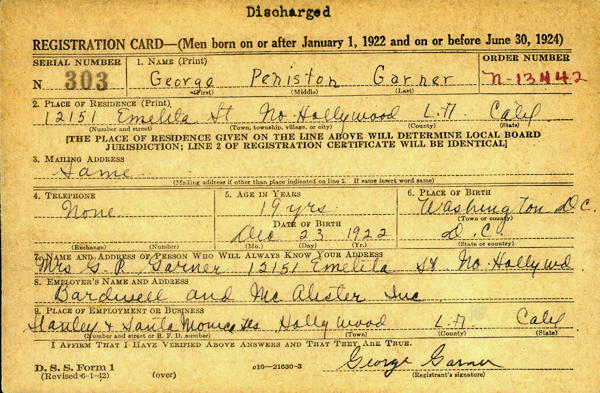 Discharged
REGISTRATION CARD—(Men born on or after January 1, 1922 and on or before June 30, 1924)
SERIAL NUMBER 1. NAME (Print) ORDER NUMBER
N 303 George Peniston Garner N-13442
(First) (Middle) (Last)
2. PLACE OF RESIDENCE (Print)
12151 Emelita St No. Hollywood L.A. Calif
(Number and street) (Town, township, village, or city) (County) (State)
[THE PLACE OF RESIDENCE GIVEN ON THE LINE ABOVE WILL DETERMINE LOCAL BOARD
JURISDICTION; LINE 2 OF REGISTRATION CERTIFICATE WILL BE IDENTICAL]
3. MAILING ADDRESS
Same
(Mailing address if other than place indicated on line 2. If same insert word same)
4. TELEPHONE 5. AGE IN YEARS 6. PLACE OF BIRTH
None 19 yrs Washington D.C.
(Town or county)
DATE OF BIRTH
Dec 23 1922 D.C.
(Exchange) (Number) (Mo.) (Day) (Yr.) (State or country)
7. NAME AND ADDRESS OF PERSON WHO WILL ALWAYS KNOW YOUR ADDRESS
Mrs G. P. Garner 12151 Emelita St No. Hollywd
8. EMPLOYER'S NAME AND ADDRESS
Bardwell and McAlister Inc
9. PLACE OF EMPLOYMENT OR BUSINESS
Stanley & Santa Monica Hollywood L.A. Calif
(Number and street or R. F. D. number) (Town) (County) (State)
I AFFIRM THAT I HAVE VERIFIED ABOVE ANSWERS AND THAT THEY ARE TRUE.
George Garner
D. S. S. Form 1
(Revised 6-1-42) (over) c16—21630-3 (Registrant's signature)